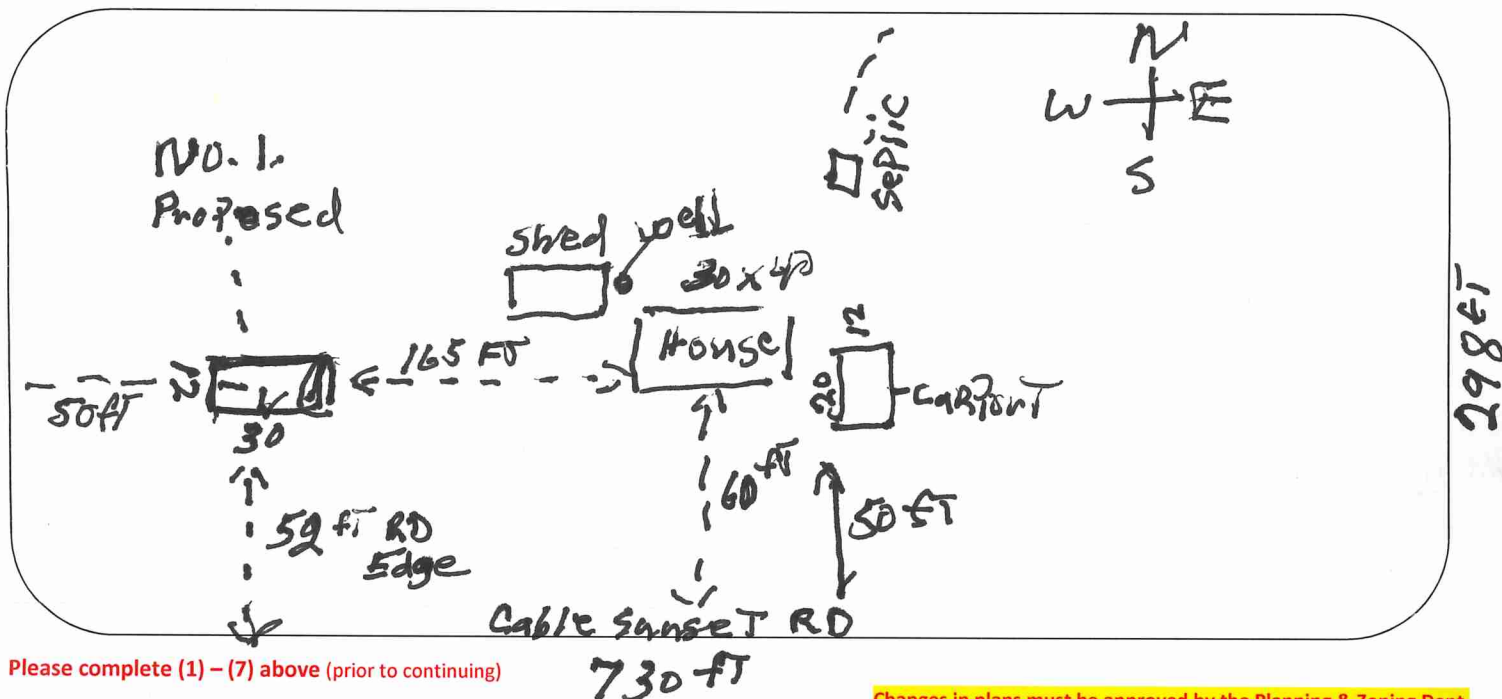 N
W E
S
Septic
No. 1.
Proposed
Shed
well
30 x 40
House
12
20
CaRPorT
298 FT
50 fT
21
30
165 FT
59 fT RD
Edge
60 fT
50 fT
Cable SunseT RD
730 fT
Please complete (1) – (7) above (prior to continuing)
Changes in plans must be approved by the Planning & Zoning Dept